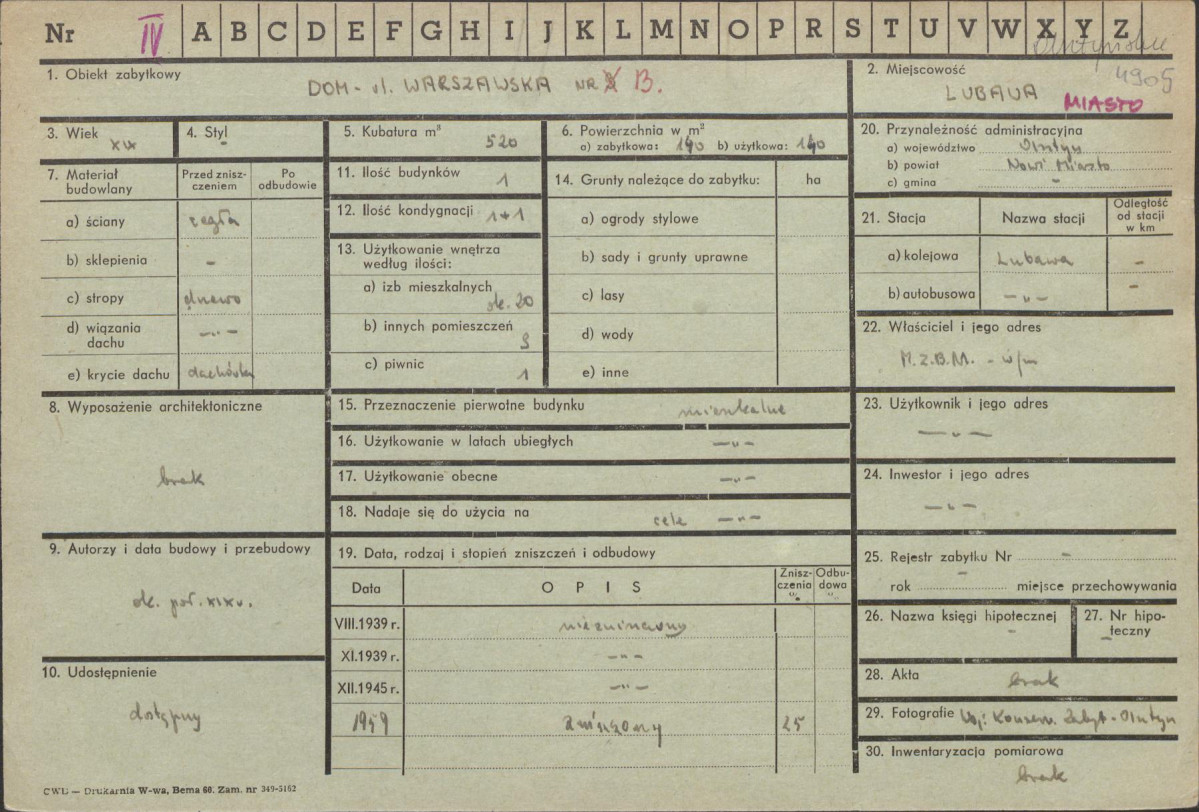 Nr IV A B C D E F G H I J K L M N O P R S T U V W X Y Z
4905
1. Obiekt zabytkowy
DOM - ul. WARSZAWSKA NR 13.
2. Miejscowość
LUBAWA MIASTO
3. Wiek
XIX
4. Styl
-
5. Kubatura m³
520
6. Powierzchnia w m²
a) zabytkowa: 140 b) użytkowa: 140
20. Przynależność administracyjna
a) województwo Olsztyn
b) powiat Nowe Miasto
c) gmina -
7. Materiał budowlany
Przed zniszczeniem
Po odbudowie
a) ściany cegła
b) sklepienia -
c) stropy drewno
d) wiązania dachu -"-
e) krycie dachu dachówka
11. Ilość budynków 1
12. Ilość kondygnacji 1+1
13. Użytkowanie wnętrza
według ilości:
a) izb mieszkalnych
ok. 20
b) innych pomieszczeń
3
c) piwnic
1
14. Grunty należące do zabytku: ha
a) ogrody stylowe
b) sady i grunty uprawne
c) lasy
d) wody
e) inne
21. Stacja
Nazwa stacji
Odległość od stacji w km
a) kolejowa Lubawa -
b) autobusowa -"- -
22. Właściciel i jego adres
M.Z.B.M. - w/m
8. Wyposażenie architektoniczne
brak
15. Przeznaczenie pierwotne budynku mieszkalne
16. Użytkowanie w latach ubiegłych -"-
17. Użytkowanie obecne -"-
18. Nadaje się do użycia na cele -"-
23. Użytkownik i jego adres
-"-
24. Inwestor i jego adres
-"-
9. Autorzy i data budowy i przebudowy
ok. poł. XIX w.
19. Data, rodzaj i stopień zniszczeń i odbudowy
Data
O P I S
Zniszczenia %
Odbudowa %
VIII.1939 r. niezniszczony
XI.1939 r. -"-
XII.1945 r. -"-
1959 zniszczony 25
25. Rejestr zabytku Nr -
rok - miejsce przechowywania
26. Nazwa księgi hipotecznej
-
27. Nr hipoteczny
-
10. Udostępnienie
dostępny
28. Akta
brak
29. Fotografie Woj. Konserw. Zabyt. - Olsztyn
30. Inwentaryzacja pomiarowa
brak
CWD — Drukarnia W-wa, Bema 60. Zam. nr 349-5162